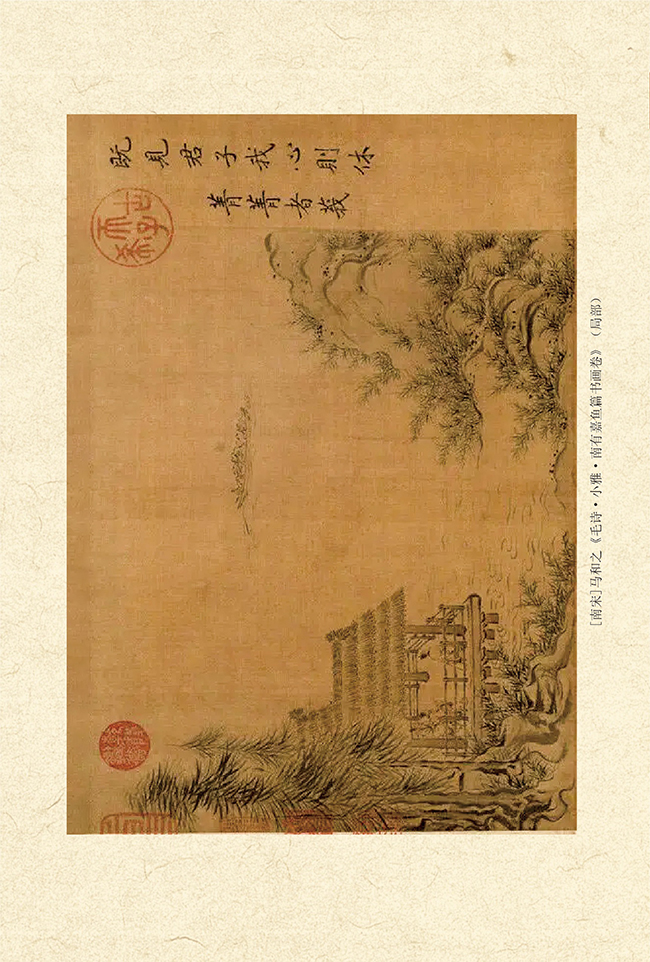 既見君子我心則休
菁菁者莪
[南宋]马和之《毛诗·小雅·南有嘉鱼篇书画卷》（局部）